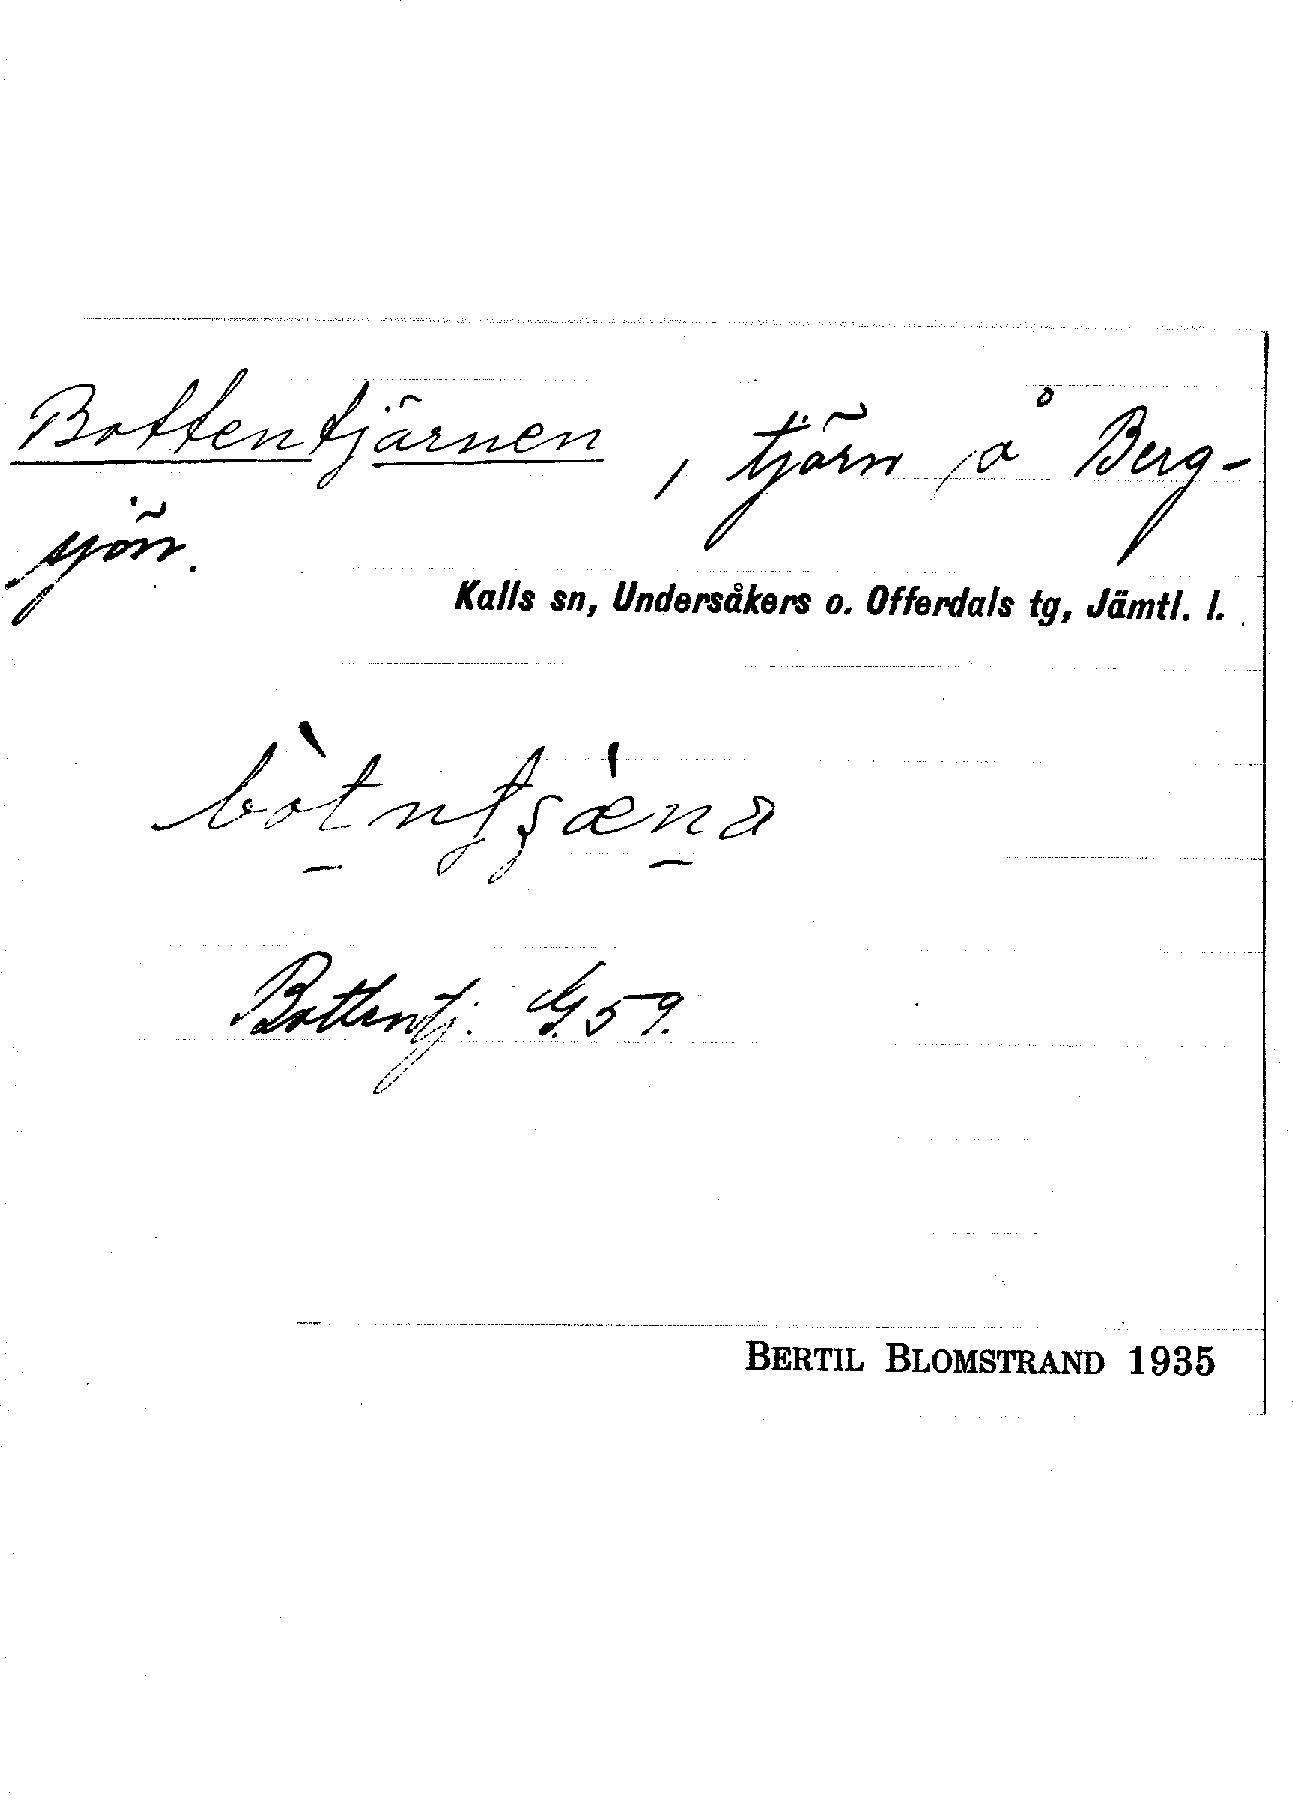 Bottentjärnen, tjärn å Berg-
sjön.
Kalls sn, Undersåkers o. Offerdals tg, Jämtl. l.
Bottentj. G. 59.
BERTIL BLOMSTRAND 1935